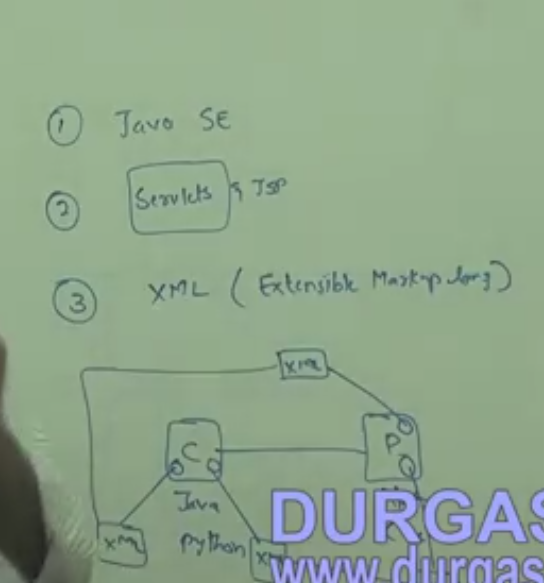 ① Java SE
② Servlets & JSP
③ XML ( Extensible Markup lang )
XML
C P
Java
XML Python
DURGAS
www.durgas